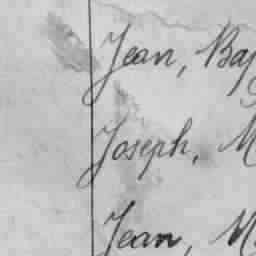 Jean, Bap
Joseph, M
Jean, M